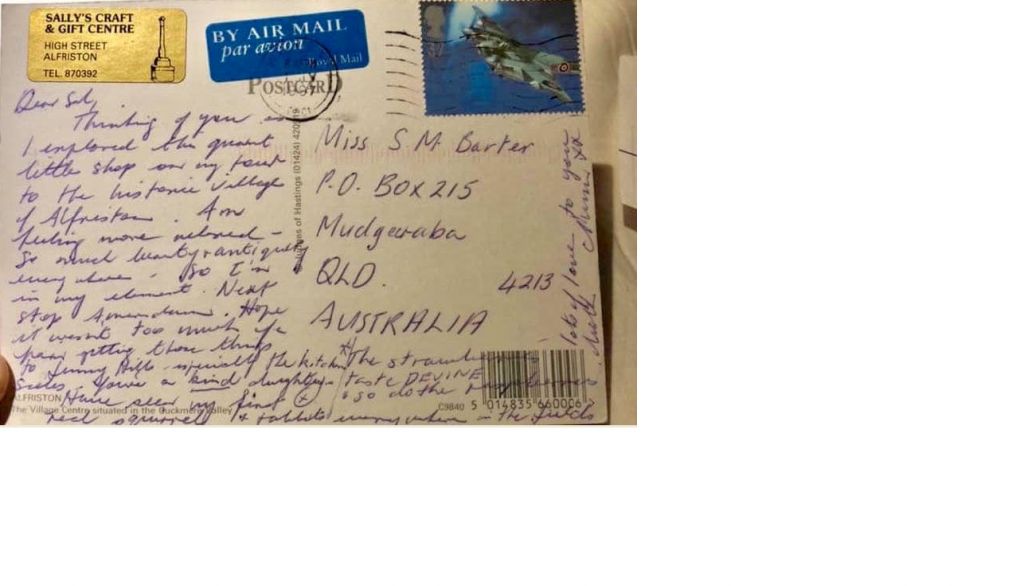 SALLY'S CRAFT
& GIFT CENTRE
HIGH STREET
ALFRISTON
TEL. 870392
BY AIR MAIL
par avion
Royal Mail
POSTCARD
Dear Sal,
Thinking of you as
I explored this quaint
little shop on my tour
to the historic village
of Alfriston. Am
feeling more relaxed -
So much beauty & antiquity
everywhere. So I'm
in my element. Next
stop Amsterdam. Hope
it wasn't too much of a
pain getting those things
to Jenny - especially the kitchen
Scales. You're a kind daughter.
Have seen my first
red squirrel & rabbits everywhere - the fields
Miss S.M. Barter
P.O. BOX 215
Mudgeeraba
QLD. 4213
AUSTRALIA
* The strawberries
taste DEVINE
& so do the raspberries
lots of love to you
xx
of Hastings (01424) 420
ALFRISTON
The Village Centre situated in the Cuckmere Valley
C9840
5 014835 660006